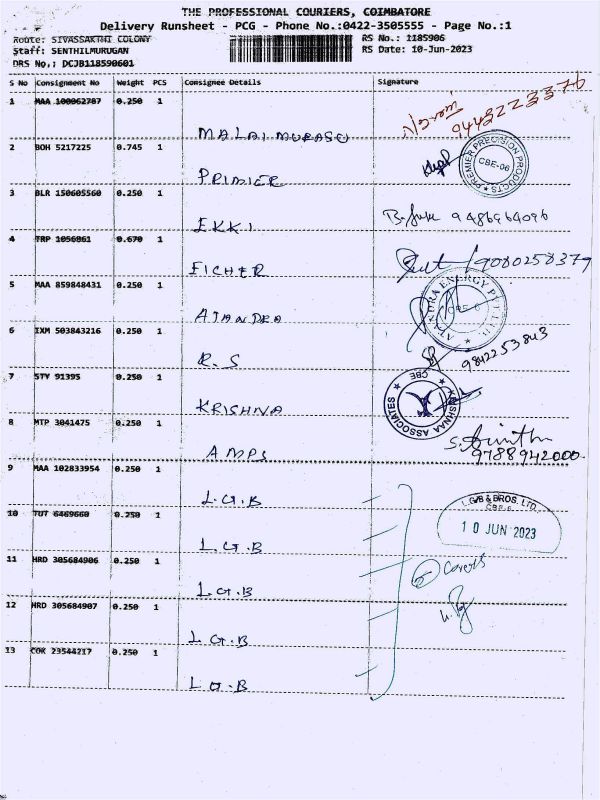 THE PROFESSIONAL COURIERS, COIMBATORE
Delivery Runsheet - PCG - Phone No.:0422-3505555 - Page No.:1
Route: SIVASSAKTHI COLONY RS No.: 1185906
Staff: SENTHILMURUGAN RS Date: 10-Jun-2023
DRS No.: DCJB118590601
S No Consignment No Weight PCS Consignee Details Signature
1 MAA 100062787 0.250 1
MALAI MURASU 9442223376
2 BOH 5217225 0.745 1
PREMIER PREMIER PRECISION PRODUCTS CBE-06
3 BLR 150605560 0.250 1
EKKI 9486964096
4 TRP 1056861 0.670 1
EICHER 9080258379
5 MAA 859848431 0.250 1
ATANDRA ENERGY
6 IXM 503843216 0.250 1
R.S 9842253843
7 STV 91395 0.250 1
KRISHNA KRISHNAA ASSOCIATES CBE
8 MTP 3041475 0.250 1
AMPS 9788942000
9 MAA 102833954 0.250 1
L.G.B L.G.B & BROS. LTD.
CBE-6
10 TUT 6469660 0.250 1
10 JUN 2023
L.G.B
11 HRD 305684906 0.250 1
5 Covers
L.G.B
12 HRD 305684907 0.250 1
L.G.B
13 COK 23544217 0.250 1
L.G.B